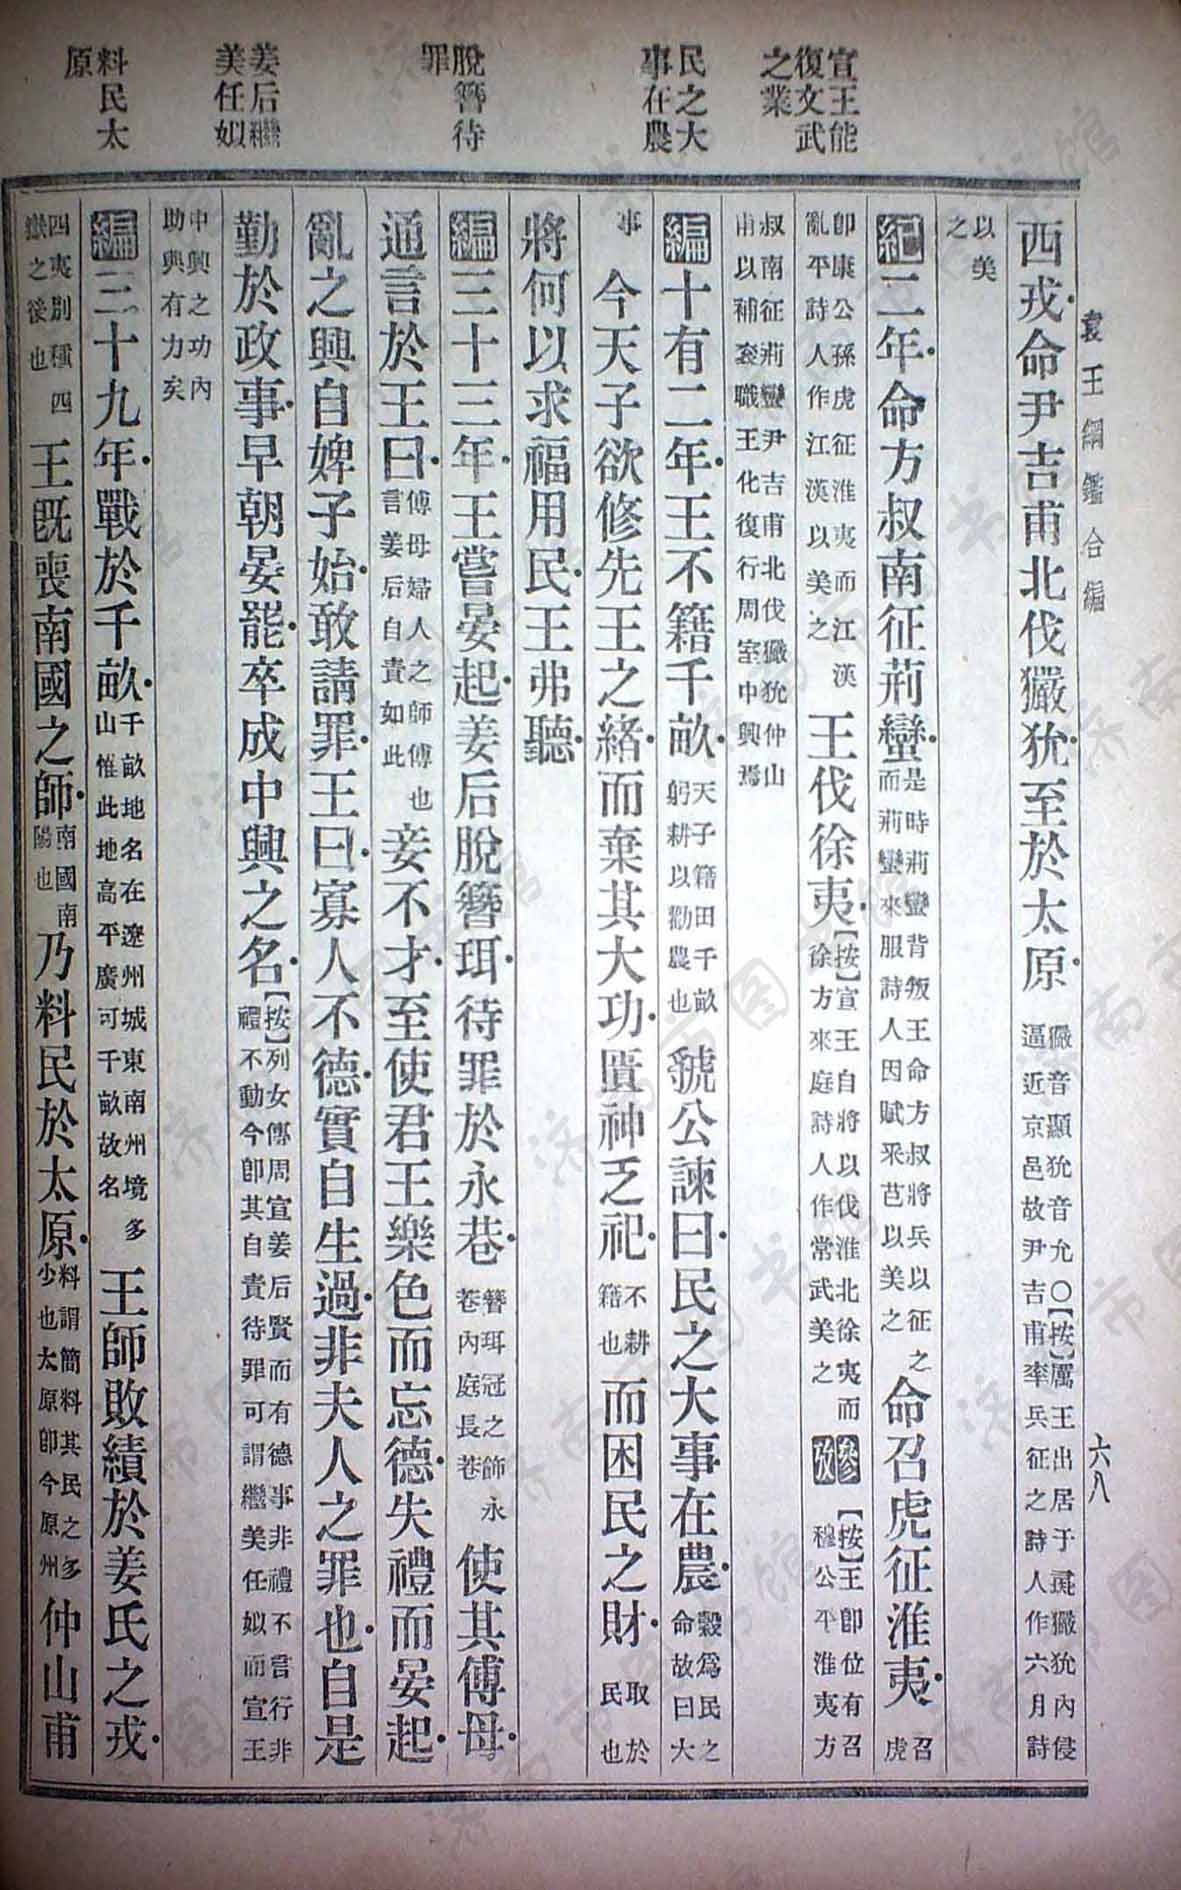 宣王能
復文武
之業
民之大
事在農
脫簪待
罪
姜后繼
美任姒
料民太
原
袁王綱鑑合編
六八
西戎命尹吉甫北伐玁狁至於太原玁音顯狁音允○【按】厲王出居于彘玁狁內侵逼近京邑故尹吉甫率兵征之詩人作六月詩
以美之
紀二年命方叔南征荊蠻是時荊蠻背叛王命方叔將兵以征之而荊蠻來服詩人因賦采芑以美之命召虎征淮夷召虎
卽康公孫虎征淮夷而江漢亂平詩人作江漢以美之王伐徐夷【按】宣王自將以伐淮北徐夷而徐方來庭詩人作常武美之參攷【按】王卽位有召穆公平淮夷方
叔南征荊蠻尹吉甫北伐玁狁仲山甫以補袞職王化復行周室中興焉
編十有二年王不籍千畝天子籍田千畝躬耕以勸農也虢公諫曰民之大事在農穀爲民之命故曰大
事今天子欲修先王之緒而棄其大功匱神乏祀不耕籍也而困民之財取於民也
將何以求福用民王弗聽
編三十三年王嘗晏起姜后脫簪珥待罪於永巷簪珥冠之飾永巷內庭長巷使其傅母
通言於王曰傅母婦人之師傅也言姜后自責如此妾不才至使君王樂色而忘德失禮而晏起
亂之興自婢子始敢請罪王曰寡人不德實自生過非夫人之罪也自是
勤於政事早朝晏罷卒成中興之名【按】列女傳周宣姜后賢而有德事非禮不言行非禮不動今卽其自責待罪可謂繼美任姒而宣王
中興之功內助與有力矣
編三十九年戰於千畝千畝地名在遼州城東南州境多山惟此地高平廣可千畝故名王師敗績於姜氏之戎
四夷別種四嶽之後也王既喪南國之師南國南陽也乃料民於太原料謂簡料其民之多少也太原卽今原州仲山甫